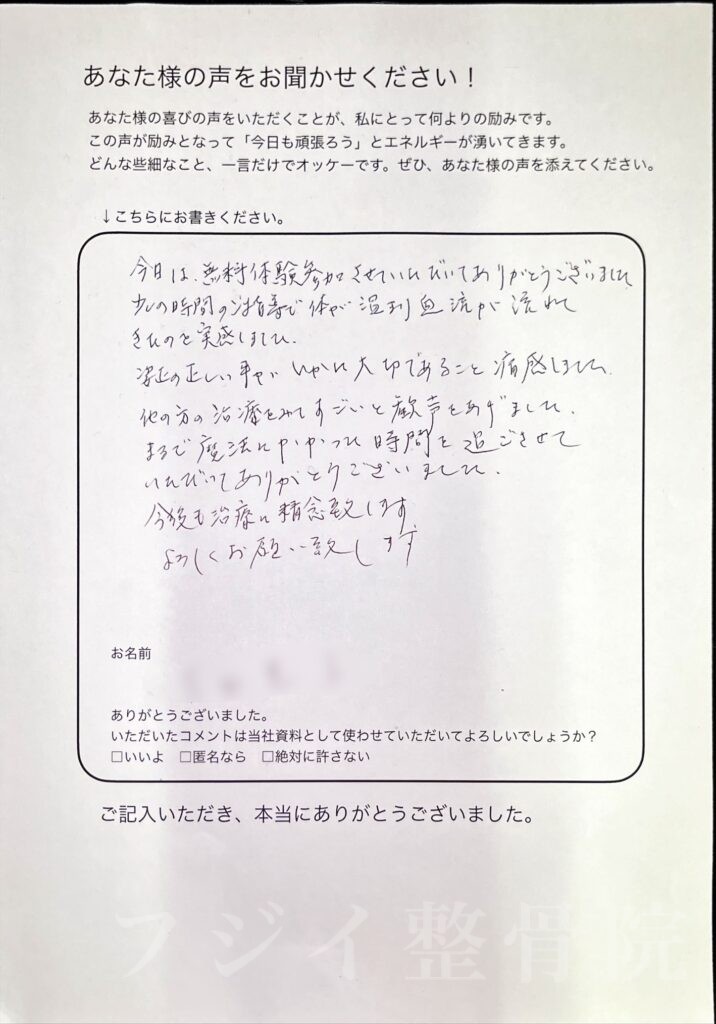 あなた様の声をお聞かせください！
あなた様の喜びの声をいただくことが、私にとって何よりの励みです。
この声が励みとなって「今日も頑張ろう」とエネルギーが湧いてきます。
どんな些細なこと、一言だけでオッケーです。ぜひ、あなた様の声を添えてください。
↓こちらにお書きください。
今日は、無料体験参加させていただいてありがとうございました
少しの時間のご指導で体が温まり血流が流れて
きたのを実感しました.
姿正の正しい事がいかに大切であること痛感しました.
他の方の治療をみてすごいと歓声をあげました.
まるで魔法にかかった時間を過ごさせて
いただいてありがとうございました.
今後も治療に精念致します
よろしくお願い致します
お名前
ありがとうございました。
いただいたコメントは当社資料として使わせていただいてよろしいでしょうか？
□いいよ　□匿名なら　□絶対に許さない
ご記入いただき、本当にありがとうございました。
フジイ整骨院